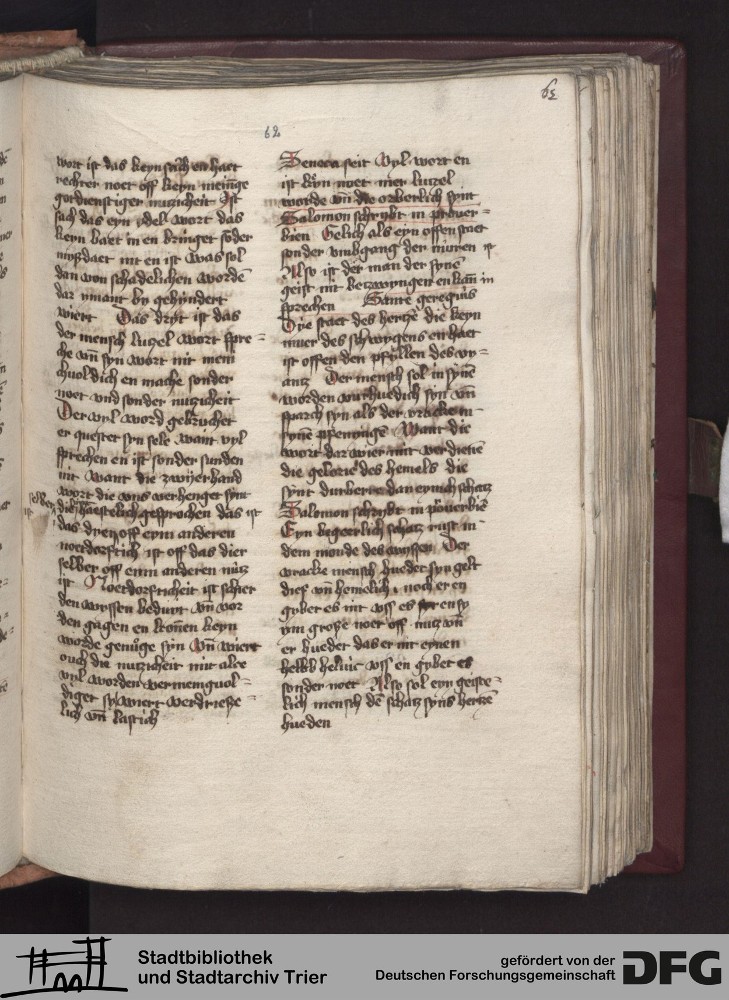 62
wort ist das keyn sach en haet
rechter noet off keyn meinge
gotdienstiger nutzicheit Ist
sach das eyn ydel wort das
keyn baet in en bringet soder
myszdaet nit en ist was sol
dan von schadelichen worde
dar nmant by gehyndert
wiert Das dryt ist das
der mensch lutzel wort spre=
che vn syn wort nit meni
chuoldich en mache sonder
noet vnd sonder nutzicheit
Der vyl word gebruchet
er quetset syn sele want vyl
sprechen en ist sonder sunden
nit Want die zwyerhand
wort die vns verhenget synt
selber ist
die haestelich gesprochen das ist
das dren off eym anderen
noetdorftich ist off das dier
selber off eym anderen nutz
ist Noetdorfticheit ist schier
den wyssen bedurt vn vor
den gagen en konen keyn
worde genuge syn vn wiert
ouch die nutzicheit mit alre
vyl worden vermeniguol=
diger sy wiert verdriesze=
lich vn lastich
Seneca seit Vyl wort en
ist keyn noet mer lutzel
worde vn die orberlich synt
Salomon schrybt in prouer=
bien Gelich als eyn offen staet
sonder vmbgang der muren ist
Also ist der man der syne
geist nit betzwyngen en kan in
sprechen Sante gregorius
Dye staet des hertze die keyn
muer des schwygens en haet
ist offen den pfyllen des vy=
antz Der mensch sol in syne
worden vorhuedich syn vn
sparch syn als der vracke in
syne pfennge Want die
wort dar wier mit verdiene
die glorie des hemels die
synt durberre dan eynich schatz
Salomon schrybt in prouerbie
Eyn begeerlich schatz rust in
dem monde des wyssen Der
vracke mensch huedet syn gelt
dief vn hemelich noch er en
gybet es nit vsz es en sy
vm grosze noet off nutz vn
er huedet das er nit eynen
helbl heluic vsz en gybet es
sonder noet Also sol eyn geiste=
lich mensch de schatz syns hertze
hueden
Stadtbibliothek
und Stadtarchiv Trier
gefördert von der
Deutschen Forschungsgemeinschaft
DFG